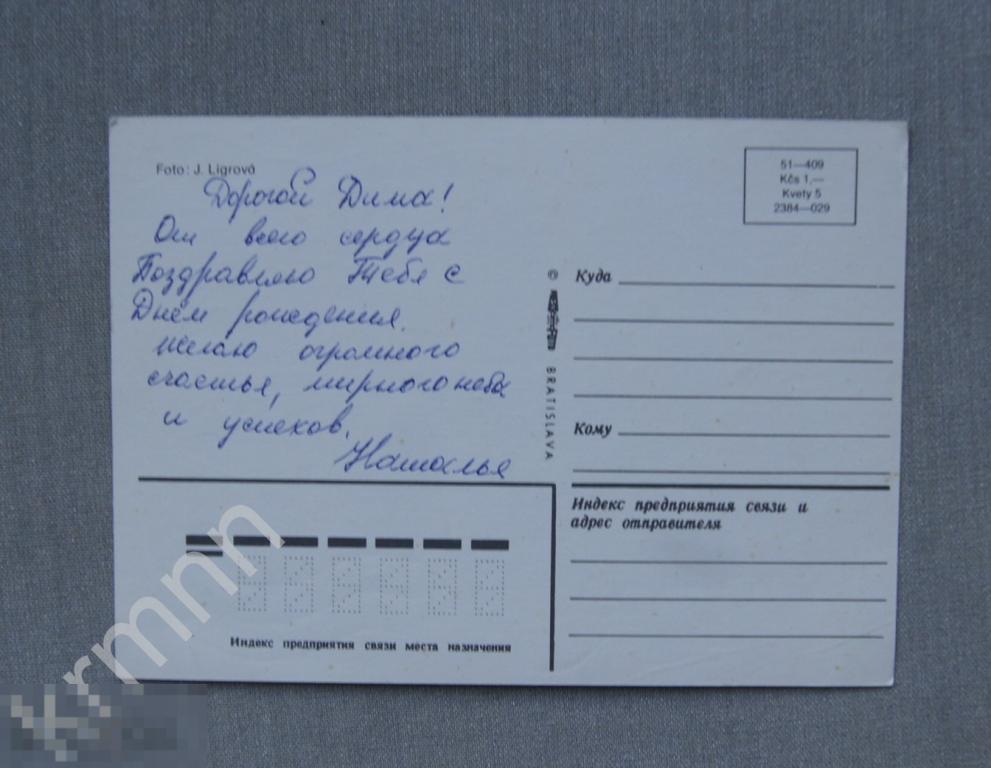 Foto: J. Ligrová
Дорогой Дима!
От всего сердца
Поздравляю Тебя с
Днем рождения.
Желаю огромного
счастья, мирного неба
и успехов.
Наталья
51—409
Kčs 1,—
Kvety 5
2384—029
©
BRATISLAVA
Куда
Кому
Индекс предприятия связи и
адрес отправителя
Индекс предприятия связи места назначения
krmnn